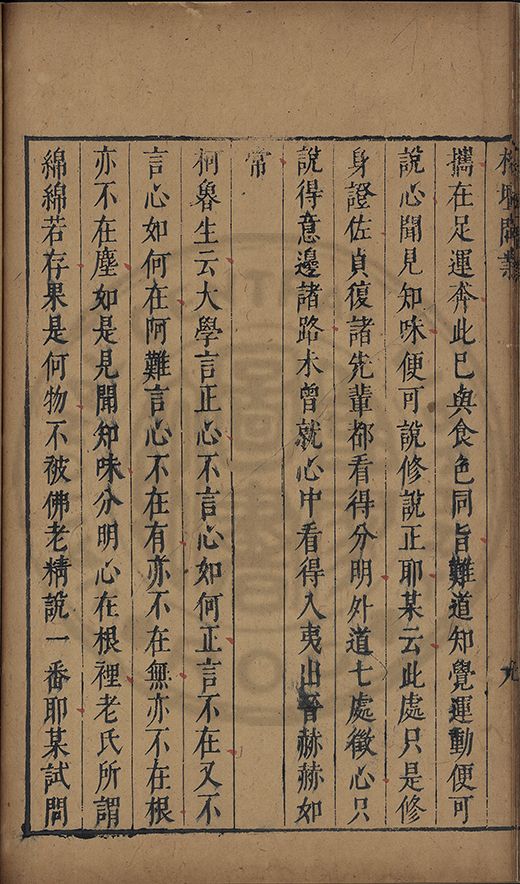 攜在足運奔此已與食色同旨難道知覺運動便可
說心聞見知味便可說修說正耶某云此處只是修
身證佐貞復諸先輩都看得分明外道七處徵心只
說得意邊諸路未曾就心中看得入夷出晉赫赫如
常
柯魯生云大學言正心不言心如何正言不在又不
言心如何在阿難言心不在有亦不在無亦不在根
亦不在塵如是見聞知味分明心在根裡老氏所謂
綿綿若存果是何物不被佛老精說一番耶某試問